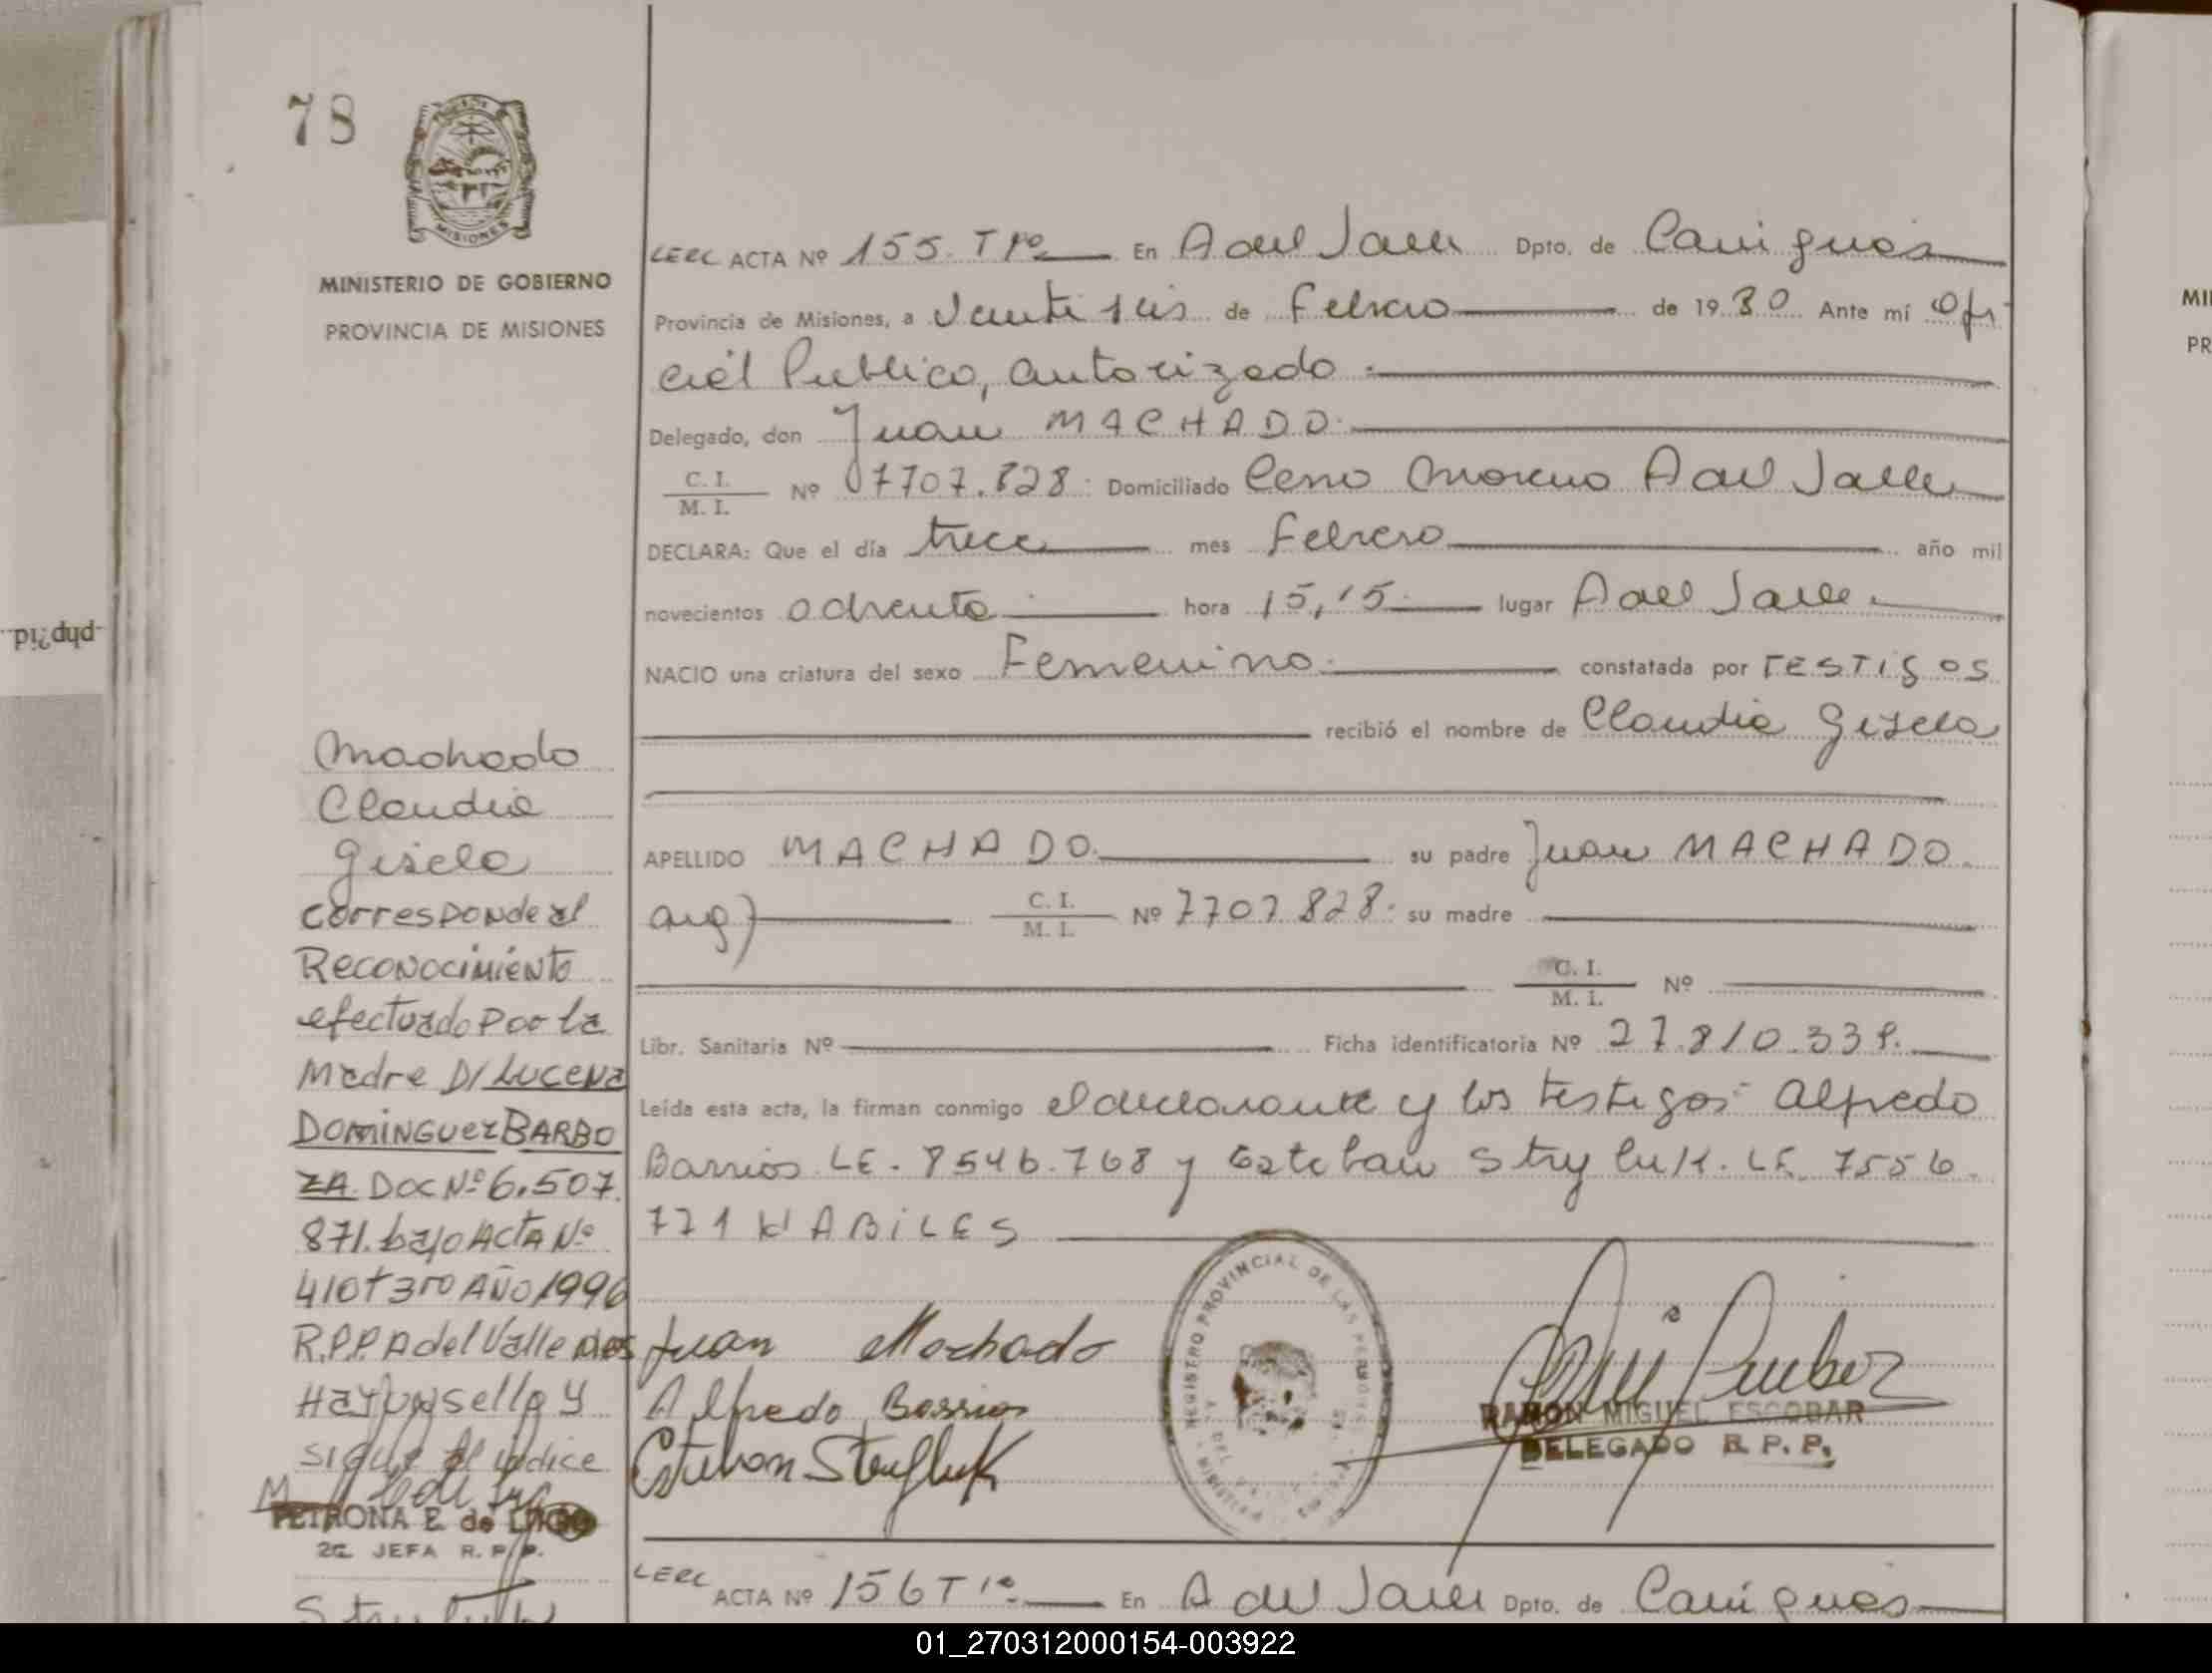 78
MISIONES
MINISTERIO DE GOBIERNO
PROVINCIA DE MISIONES
LERC ACTA Nº 155. Tº1º En A del Valle Dpto. de Cainguás
Provincia de Misiones, a Veinti seis de Febrero de 1980. Ante mí Ofi
cial Publico, autorizado
Delegado, don Juan MACHADO.
C. I.
M. I. Nº 7707.828. Domiciliado Cerro Moreno A del Valle
DECLARA: Que el día trece mes Febrero año mil
novecientos ochenta hora 15,15 lugar A del Valle
NACIO una criatura del sexo Femenino. constatada por TESTIGOS
recibió el nombre de Claudia Gisela
APELLIDO MACHADO. su padre Juan MACHADO.
arg) C. I.
M. I. Nº 7707.828. su madre
C. I.
M. I. Nº
Libr. Sanitaria Nº Ficha identificatoria Nº 27.810.339.
Leída esta acta, la firman conmigo el declarante y los testigos: Alfredo
Barrios LE. 8546.768 y Esteban Stryluk. LE. 7556.
771 HABILES
Juan Machado
Alfredo Barrios
Esteban Stryluk
REGISTRO PROVINCIAL DE LAS PERSONAS
RAMON MIGUEL ESCOBAR
DELEGADO R. P. P.
Machado
Claudia
Gisela
Corresponde al
Reconocimiento
efectuado por la
Madre D/ Lucena
DOMINGUEZ BARBO
ZA. Doc Nº 6.507.
871. bajo Acta Nº
410 t 3ro AÑO 1996
R.P.P. A del Valle Mes
Hay un sello y
sigue al indice
PETRONA E. de LUGO
2a. JEFA R. P. P.
LERC ACTA Nº 156 Tº1º En A del Valle Dpto. de Cainguás
php?id
MI
PR
01_270312000154-003922